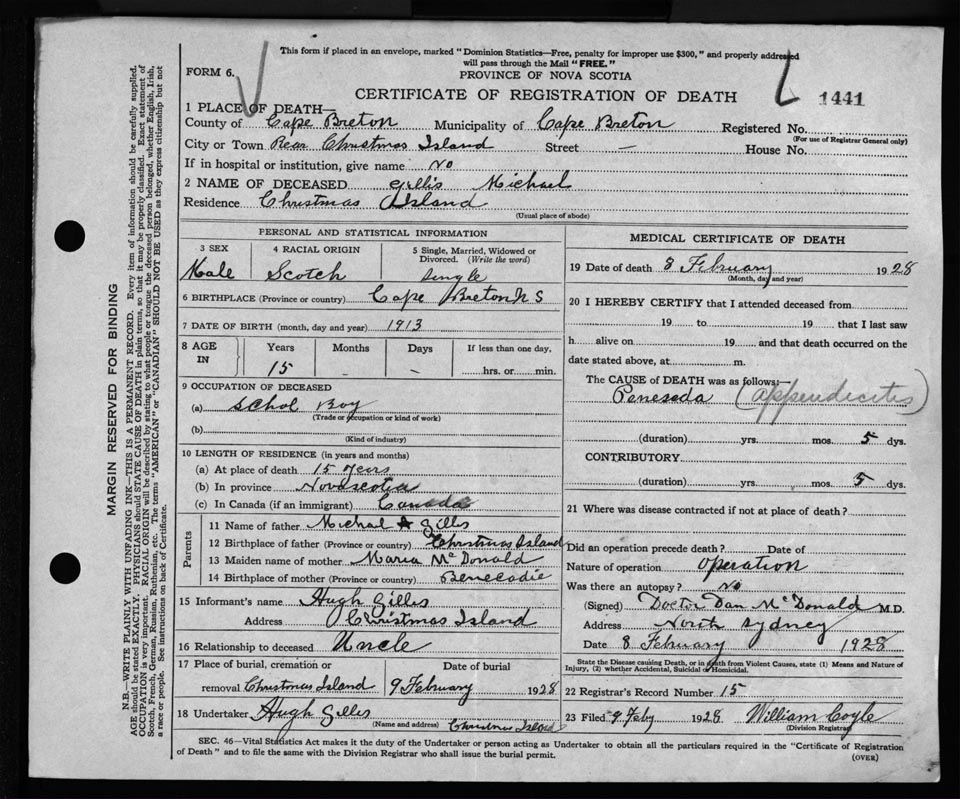 This form if placed in an envelope, marked "Dominion Statistics—Free, penalty for improper use $300," and properly addressed
will pass through the Mail "FREE."
FORM 6.
PROVINCE OF NOVA SCOTIA
CERTIFICATE OF REGISTRATION OF DEATH
1441
1 PLACE OF DEATH—
County of Cape Breton Municipality of Cape Breton Registered No.
(For use of Registrar General only)
City or Town Rear Christmas Island Street — House No.
If in hospital or institution, give name No
2 NAME OF DECEASED Gillis Michael
Residence Christmas Island
(Usual place of abode)
PERSONAL AND STATISTICAL INFORMATION
3 SEX 4 RACIAL ORIGIN 5 Single, Married, Widowed or
Divorced. (Write the word)
Male Scotch single
6 BIRTHPLACE (Province or country) Cape Breton N S
7 DATE OF BIRTH (month, day and year) 1913
8 AGE IN Years Months Days If less than one day,
15 - - hrs. or min.
9 OCCUPATION OF DECEASED
(a) Schol Boy
(Trade or occupation or kind of work)
(b)
(Kind of industry)
10 LENGTH OF RESIDENCE (in years and months)
(a) At place of death 15 years
(b) In province Novascotia
(c) In Canada (if an immigrant) Canada
Parents
11 Name of father Michal A Gillis
12 Birthplace of father (Province or country) Christmas Island
13 Maiden name of mother Maria McDonald
14 Birthplace of mother (Province or country) Benecadie
15 Informant's name Hugh Gillis
Address Christmas Island
16 Relationship to deceased Uncle
17 Place of burial, cremation or Date of burial
removal Christmas Island 9 February 1928
18 Undertaker Hugh Gillis
(Name and address) Christmas Island
MEDICAL CERTIFICATE OF DEATH
19 Date of death 8 February 1928
(Month, day and year)
20 I HEREBY CERTIFY that I attended deceased from
19 to 19 that I last saw
h alive on 19 and that death occurred on the
date stated above, at m.
The CAUSE of DEATH was as follows:—
Peneseda (appendicites)
(duration) yrs. mos. 5 dys.
CONTRIBUTORY
(duration) yrs. mos. 5 dys.
21 Where was disease contracted if not at place of death?
Did an operation precede death? Date of
Nature of operation Operation
Was there an autopsy? No
(Signed) Doctor Dan McDonald M.D.
Address North Sydney
Date 8 February 1928
State the Disease causing Death, or in death from Violent Causes, state (1) Means and Nature of
Injury, (2) whether Accidental, Suicidal or Homicidal.
22 Registrar's Record Number 15
23 Filed 9 Feby 1928 William Coyle
(Division Registrar)
SEC. 46—Vital Statistics Act makes it the duty of the Undertaker or person acting as Undertaker to obtain all the particulars required in the "Certificate of Registration
of Death" and to file the same with the Division Registrar who shall issue the burial permit.
(OVER)
MARGIN RESERVED FOR BINDING
N.B.—WRITE PLAINLY WITH UNFADING INK—THIS IS A PERMANENT RECORD. Every item of information should be carefully supplied.
AGE should be stated EXACTLY. PHYSICIANS should STATE CAUSE OF DEATH in plain terms, so that it may be properly classified. Exact statement of
OCCUPATION is very important. RACIAL ORIGIN will be described by stating to what people or tongue the deceased person belonged, whether English, Irish,
Scotch, French, German, Russian, Ruthenian, etc. The terms "AMERICAN" or "CANADIAN" SHOULD NOT BE USED as they express citizenship but not
a race or people. See instructions on back of Certificate.